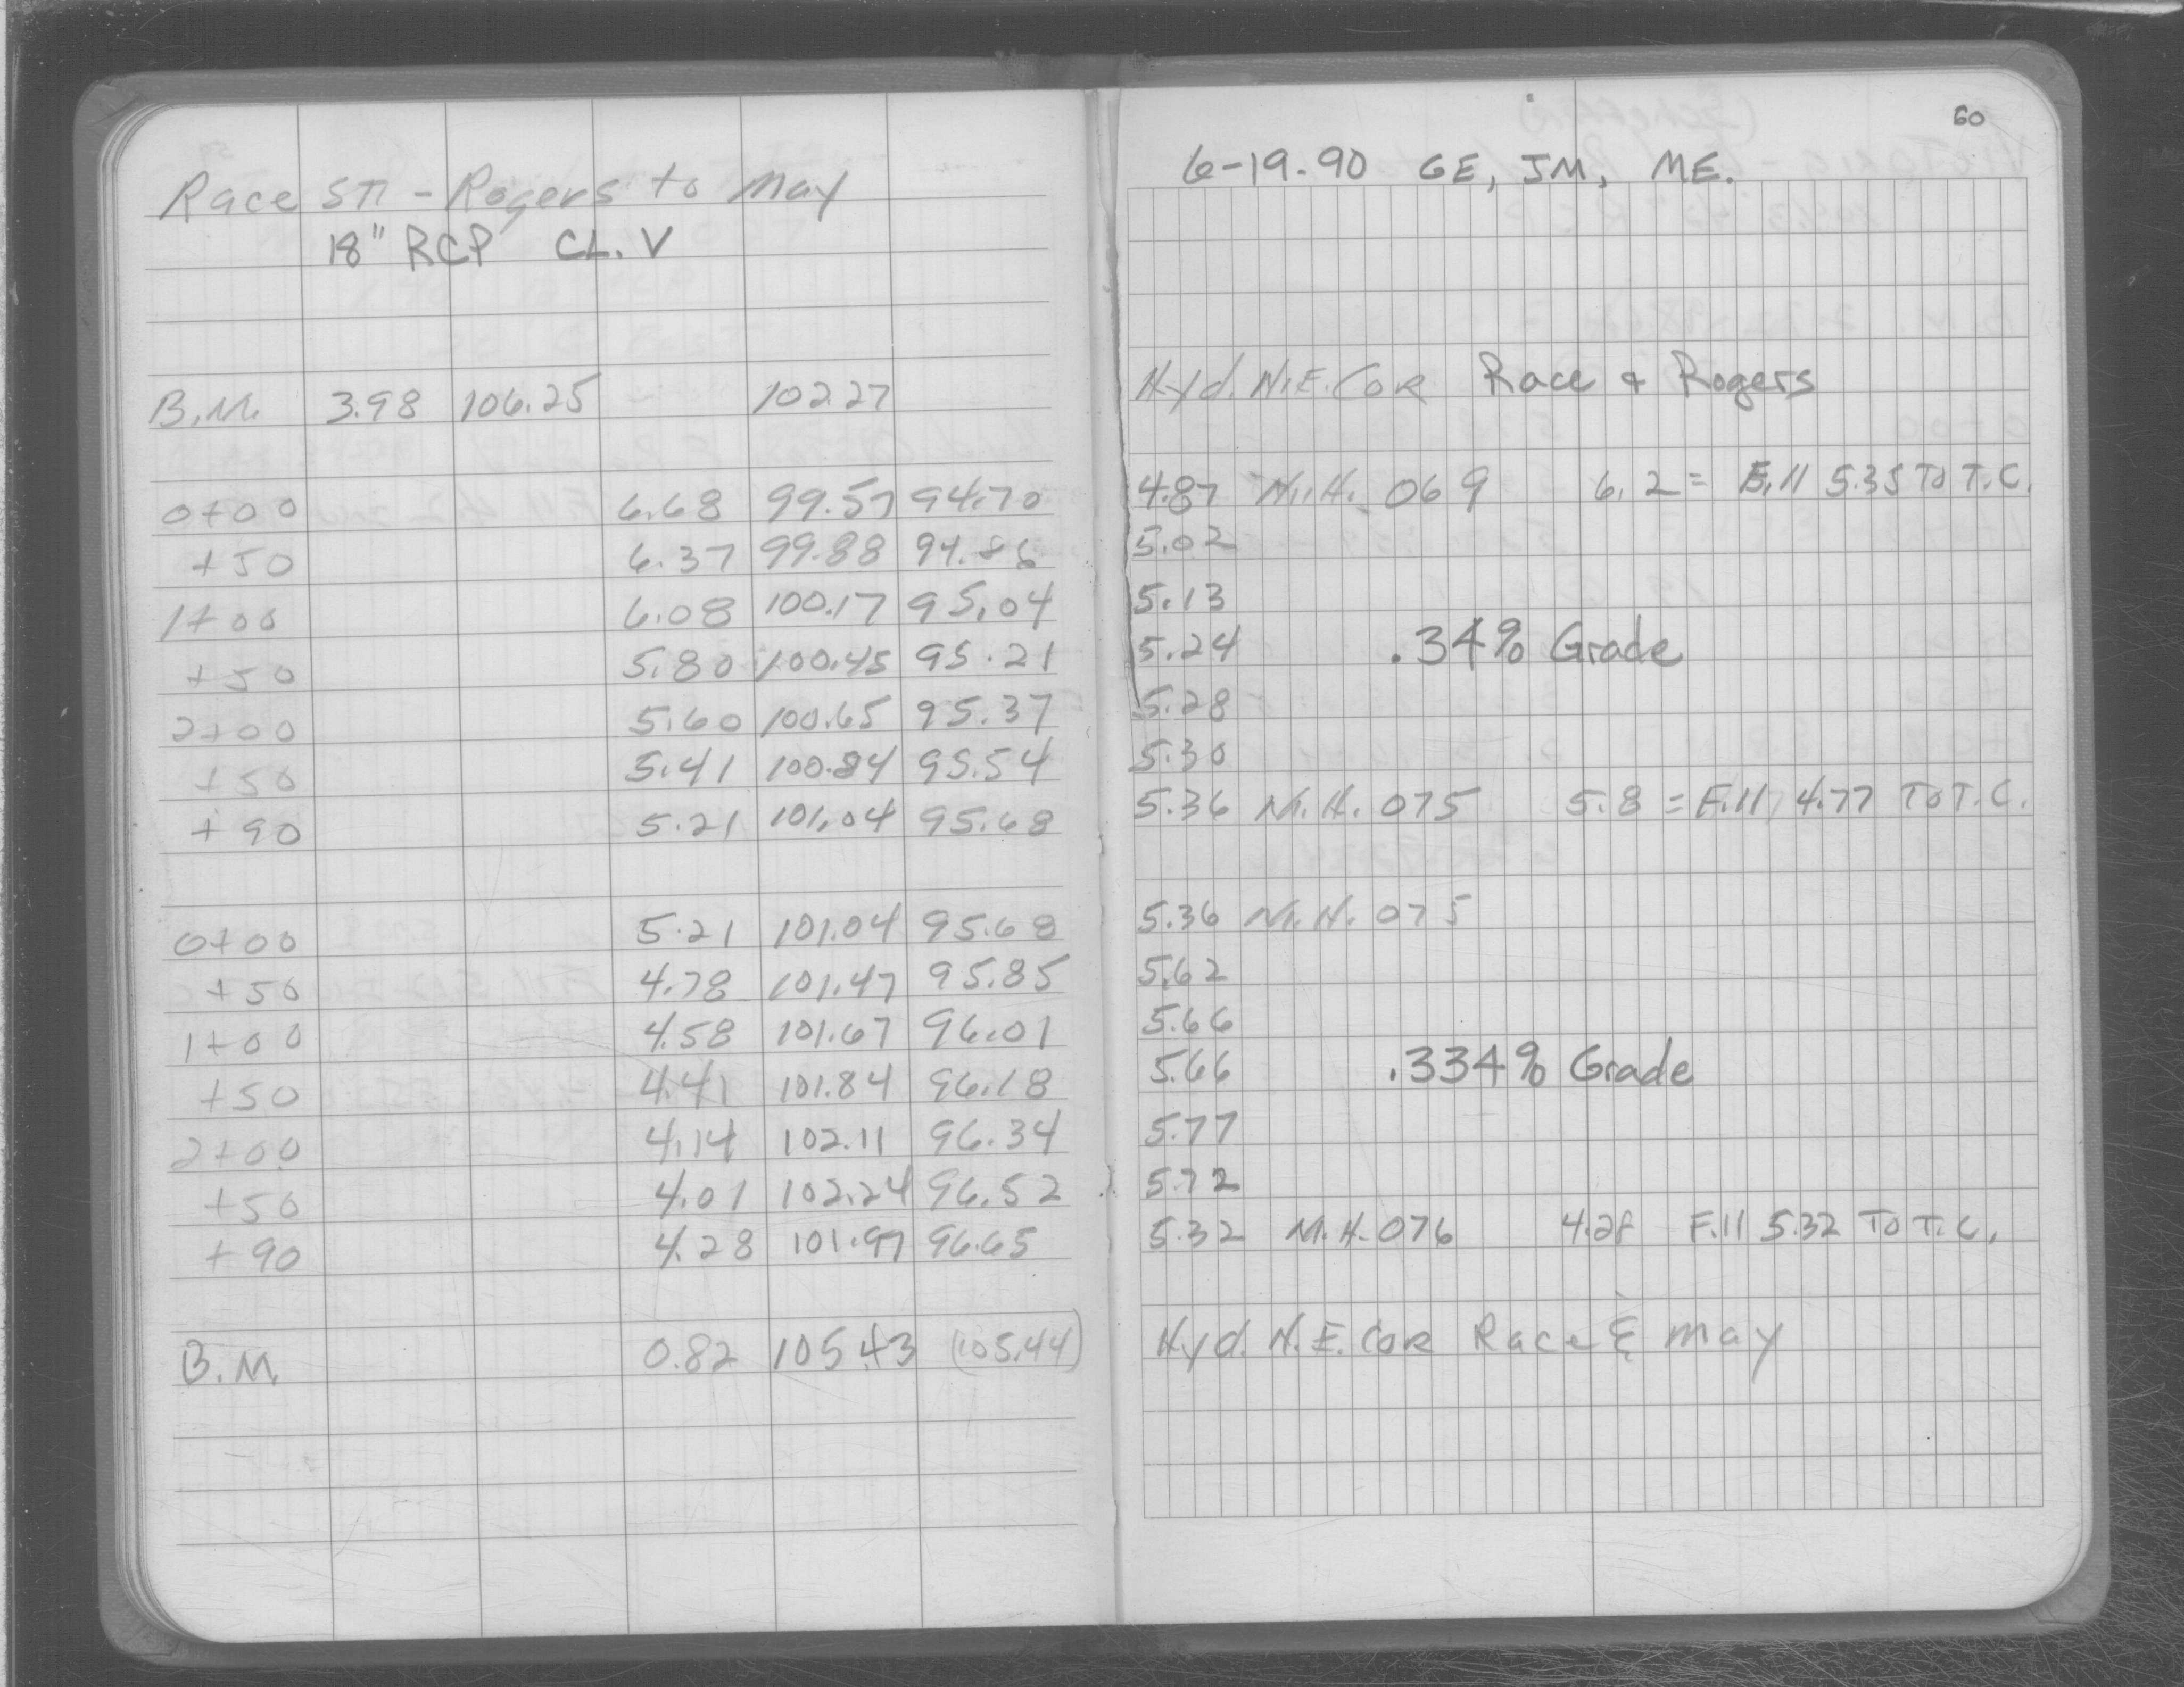 Race St - Rogers to May
18" RCP CL. V
B.M. 3.98 106.25 - 102.27
0+00 6.68 99.57 94.70
+50 6.37 99.88 94.86
1+00 6.08 100.17 95.04
+50 5.80 100.45 95.21
2+00 5.60 100.65 95.37
+50 5.41 100.84 95.54
+90 5.21 101.04 95.68
0+00 5.21 101.04 95.68
+50 4.78 101.47 95.85
1+00 4.58 101.67 96.01
+50 4.41 101.84 96.18
2+00 4.14 102.11 96.34
+50 4.01 102.24 96.52
+90 4.28 101.97 96.65
B.M. 0.82 105.43 (105.44)
60
6-19-90 GE, JM, ME.
Hyd. N.E. Cor Race & Rogers
4.87 M.H. 069 6.2 = Fill 5.35 To T.C.
5.02
5.13
5.24 .34% Grade
5.28
5.30
5.36 M.H. 075 5.8 = Fill 4.77 To T.C.
5.36 M.H. 075
5.62
5.66
5.66 .334% Grade
5.77
5.72
5.32 M.H. 076 4.28 Fill 5.32 To T.C.
Hyd. N.E. Cor Race & May